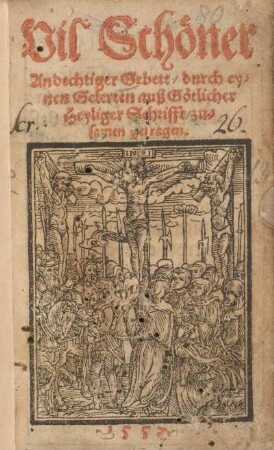 Vil Schöner
Andechtiger Gebett / durch ey-
nen Gelerten auß Götlicher
Heyliger Schrifft / zu
samen getragen.
26.
INRI